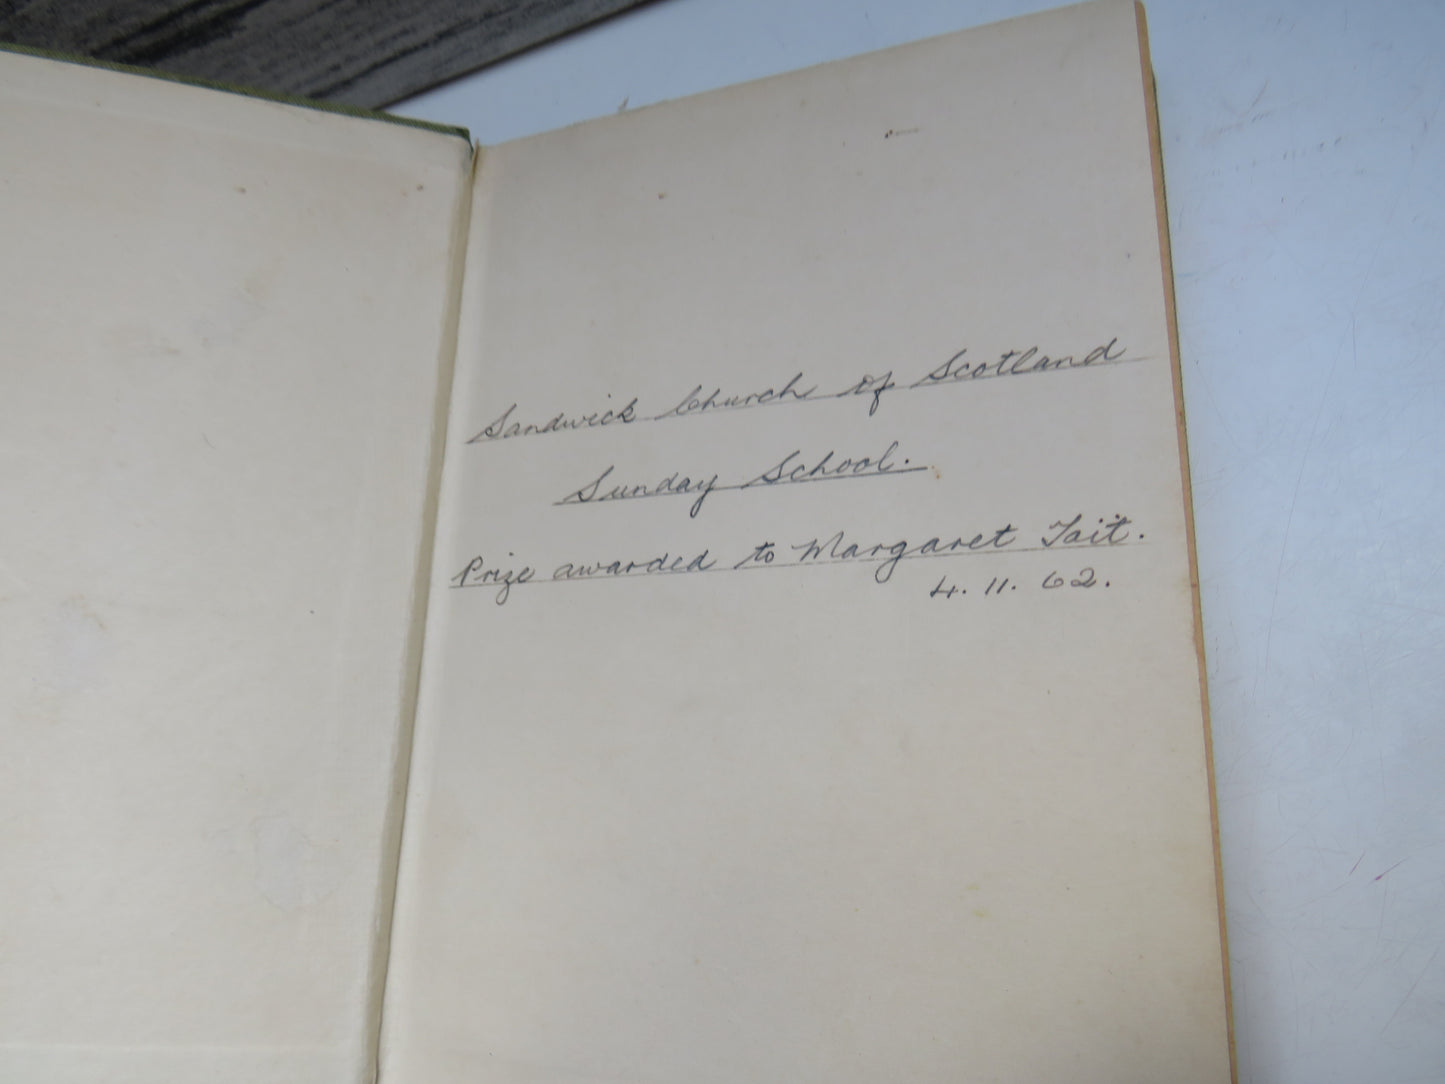 Sandwick Church of Scotland
Sunday School.
Prize awarded to Margaret Tait.
4. 11. 62.